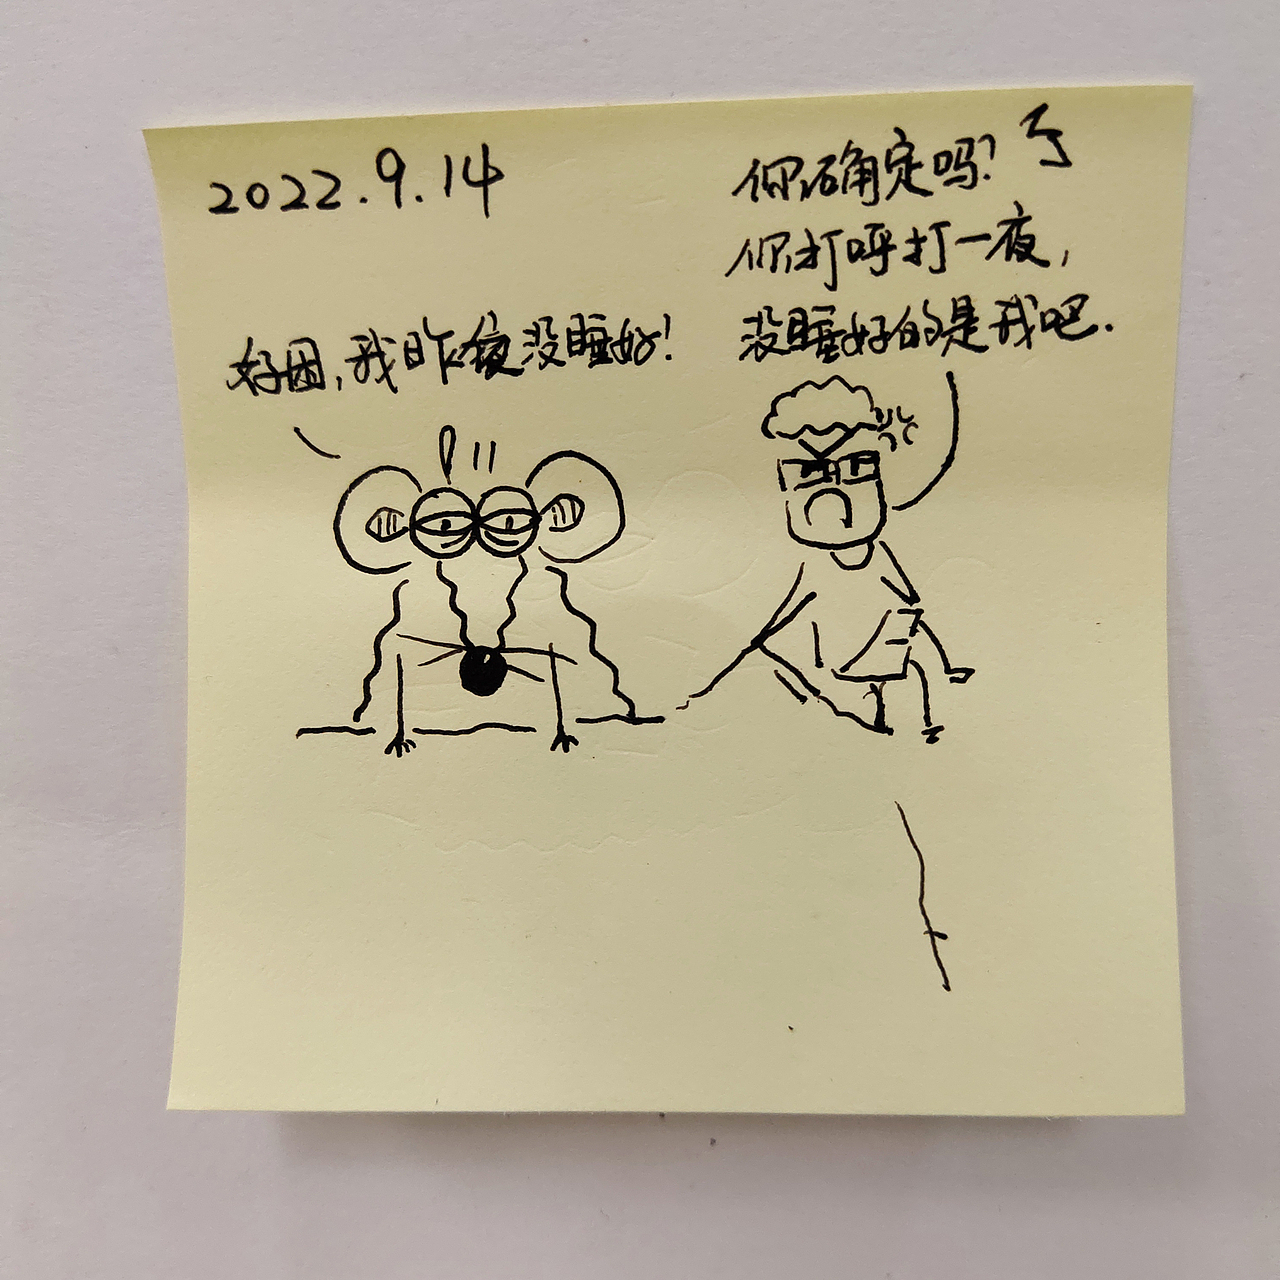 2022.9.14
好困,我昨夜没睡好!
你确定吗?
你打呼打一夜,
没睡好的是我吧.